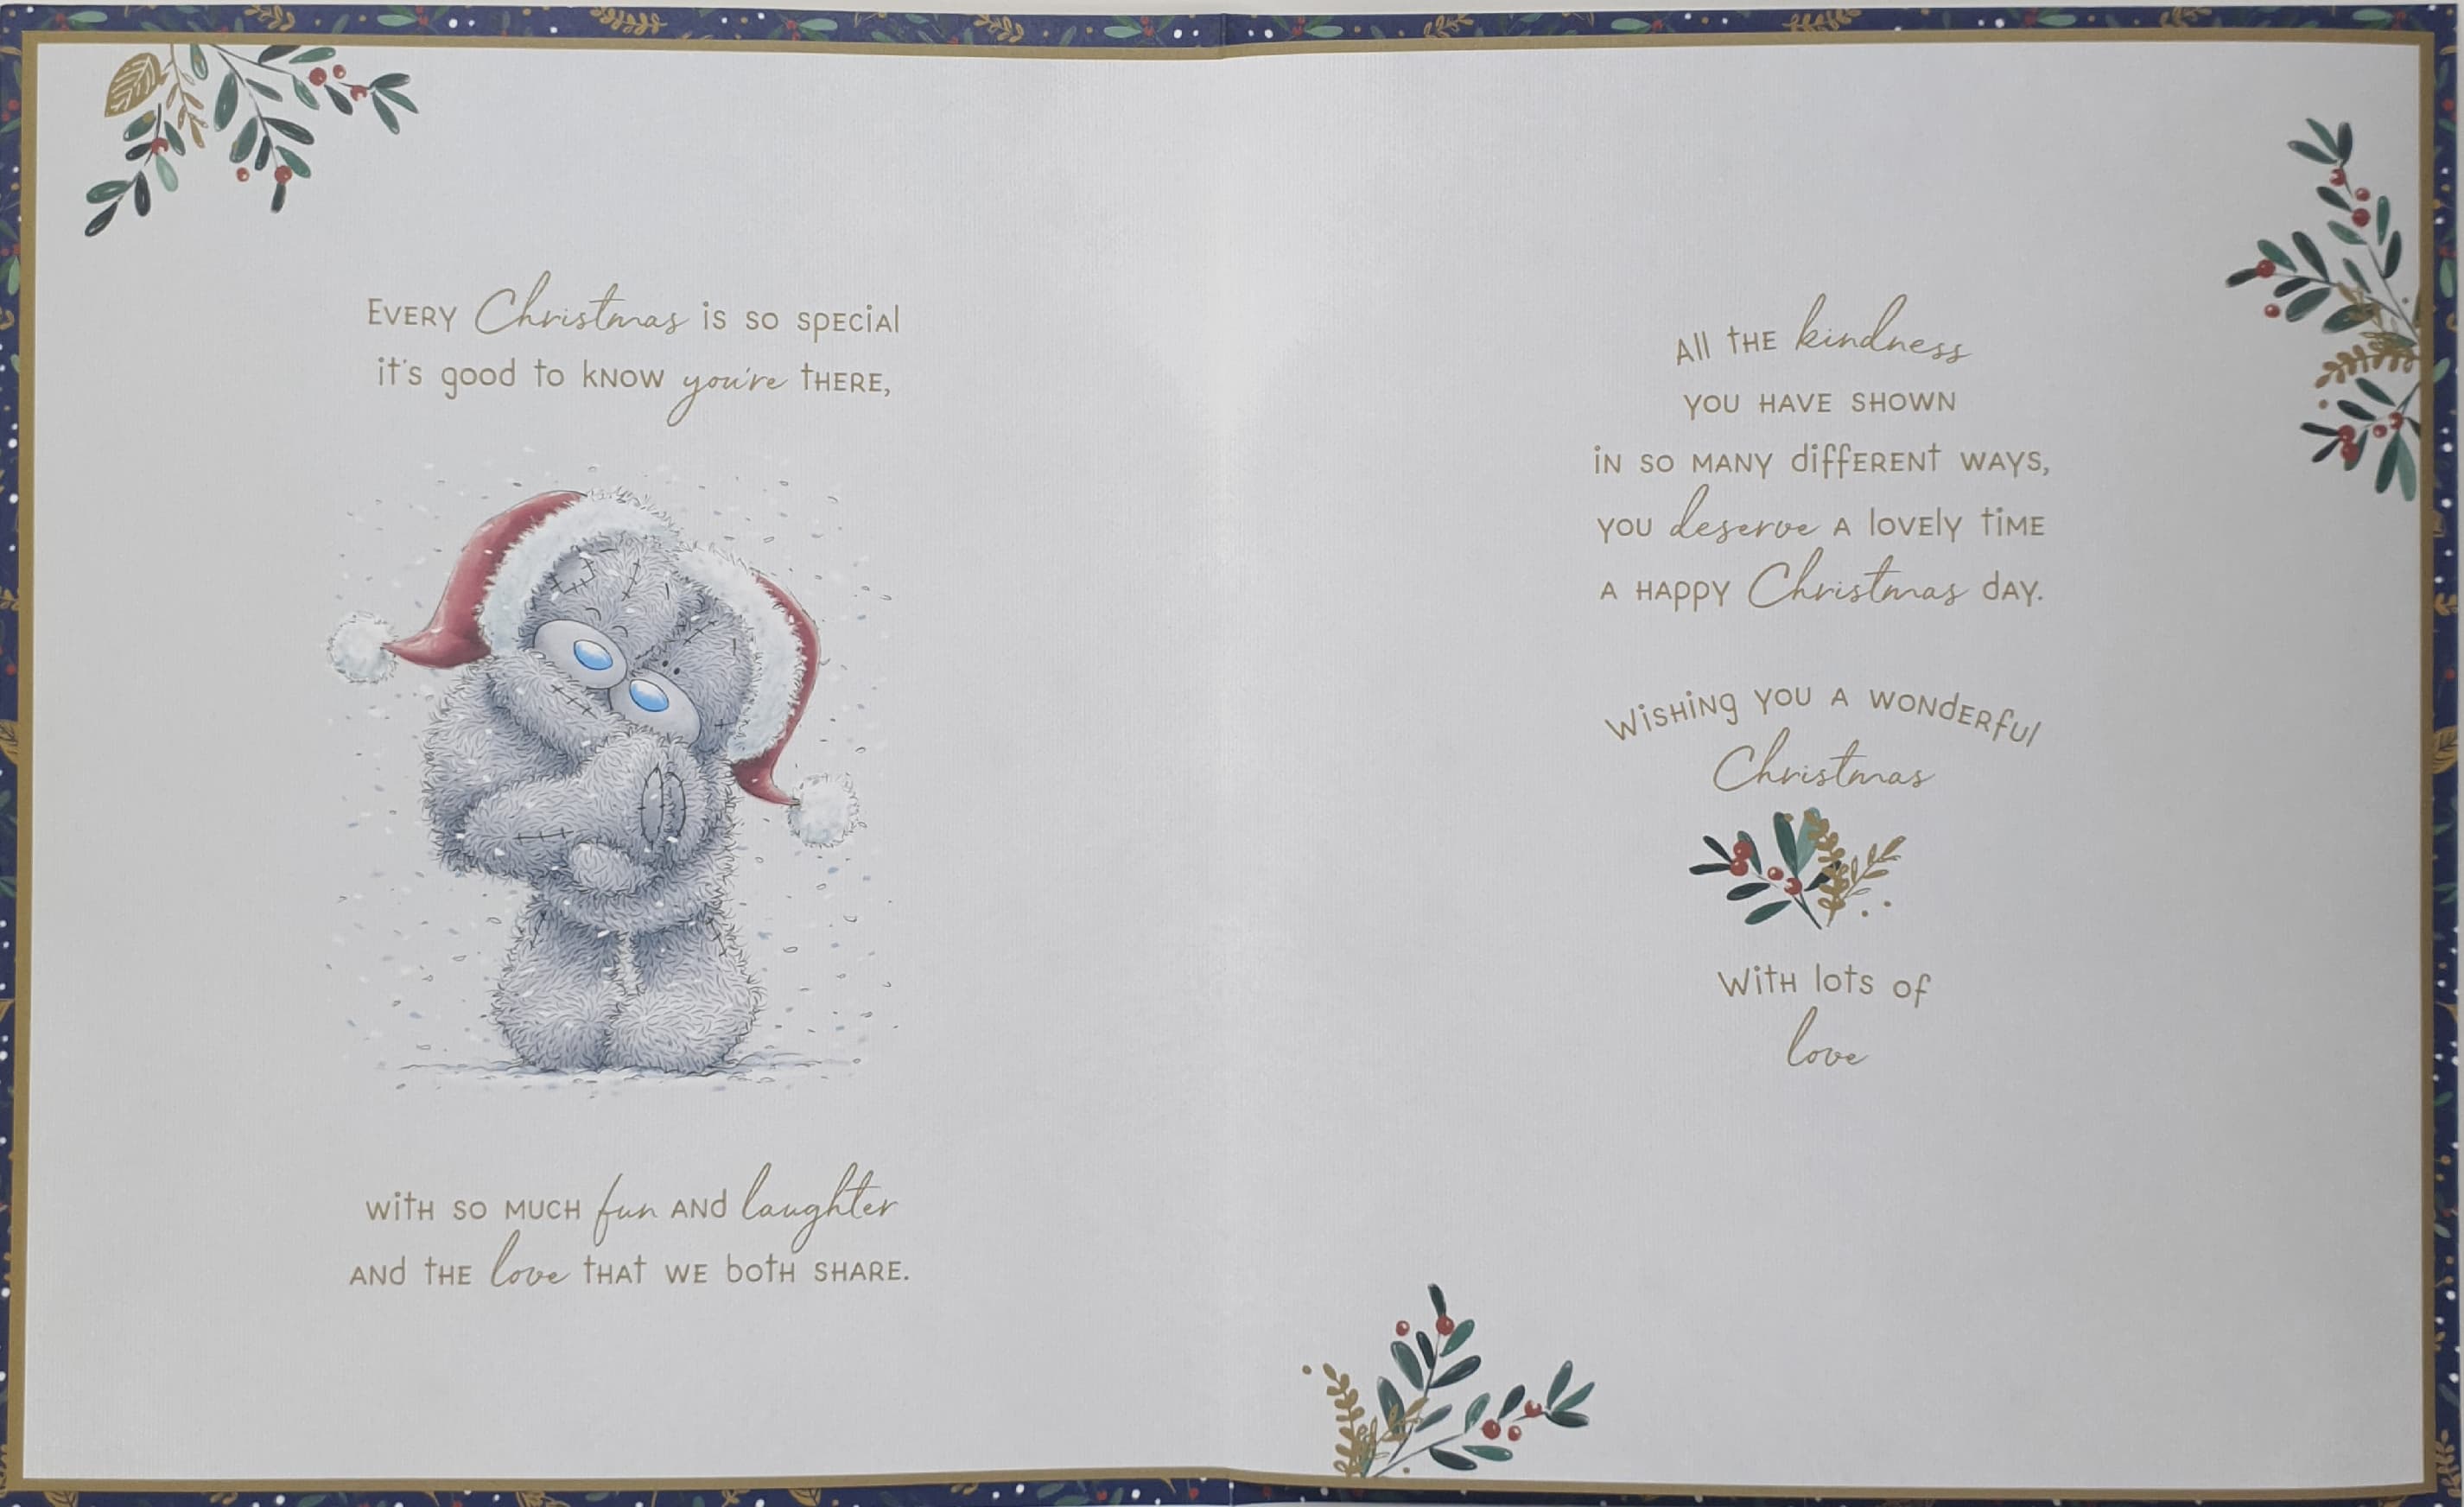 EVERY Christmas is so special
it's good to know you're THERE,
with so much fun and laughter
and the love that we both share.
All the kindness
you have shown
in so many different ways,
you deserve a lovely time
a happy Christmas day.
Wishing you a wonderful
Christmas
With lots of
love